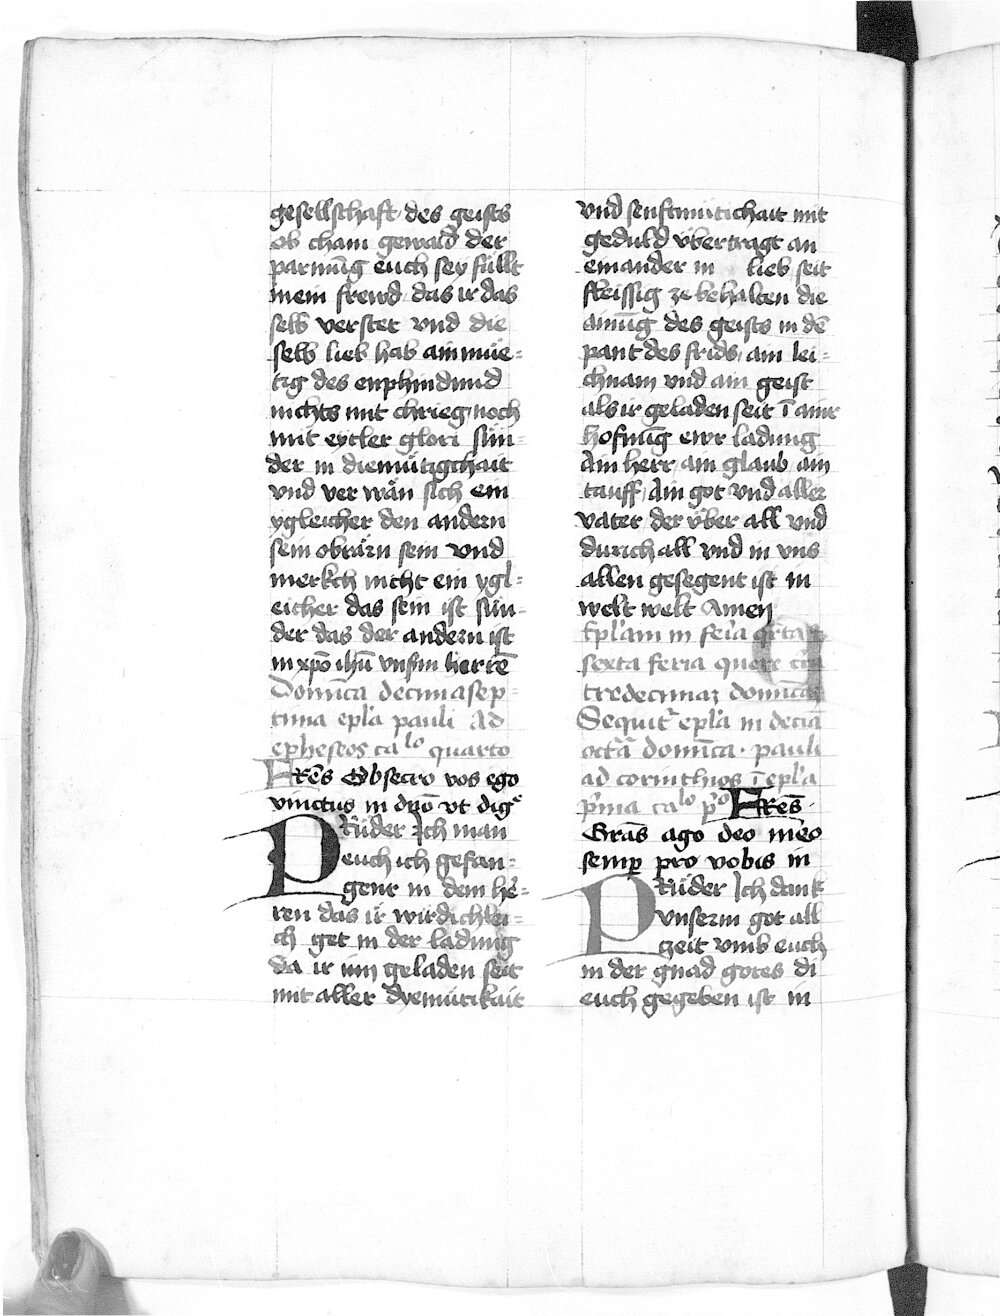 gesellschaft des geists
ob cham gewald der
parmūg euch sey füllt
mein frewd das ir das
selb verstet vnd die
selb lieb hab ainmüe-
tig des enphindund
nichts mit chrieg noch
mit eytler glori sün-
der in diemütigchait
vnd ver wän sich ein
ygleicher den andern
sein obrärn sein vnd
merkch nicht ein ygl-
eicher das sein ist sün-
der das der andern ist
in xpō ihū vnsm herrē
Domīca decimasep-
tima epl̄a pauli Ad
epheseos calo quarto
FRēs Obsecro vos ego
vinctus in dn̄o vt dige
PRüder Ich man
euch ich gefan-
genr in dem he-
ren das ir wirdichlei-
ch get in der ladung
da ir inn geladen seit
mit aller dyemütikait
vnd senftmütichait mit
geduld vbertragt an
einander in lieb seit
fleissig ze behalten die
ainūg des geists in dē
pant des frids, ain lei-
chnam vnd ain geist
als ir geladen seit ī ainr
hofnūg ewr ladung
Ain herr ain glaub ain
tauff, Ain got vnd aller
vater der vber all vnd
durich all vnd in vns
allen gesegent ist in
welt welt Amen
Epl̄am in fe͛ia q͛rta
sexta feria quere
tredecimaȝ domīca
Sequit͛ epl̄a in decia
octā domīca pauli
ad corinthios ī epl̄a
p͛ma calo po FRēs
Grās ago deo meo
semꝑ pro vobis in
PRüder Ich dank
vnserm got all
zeit vmb euch
in der gnad gotes di
euch gegeben ist in